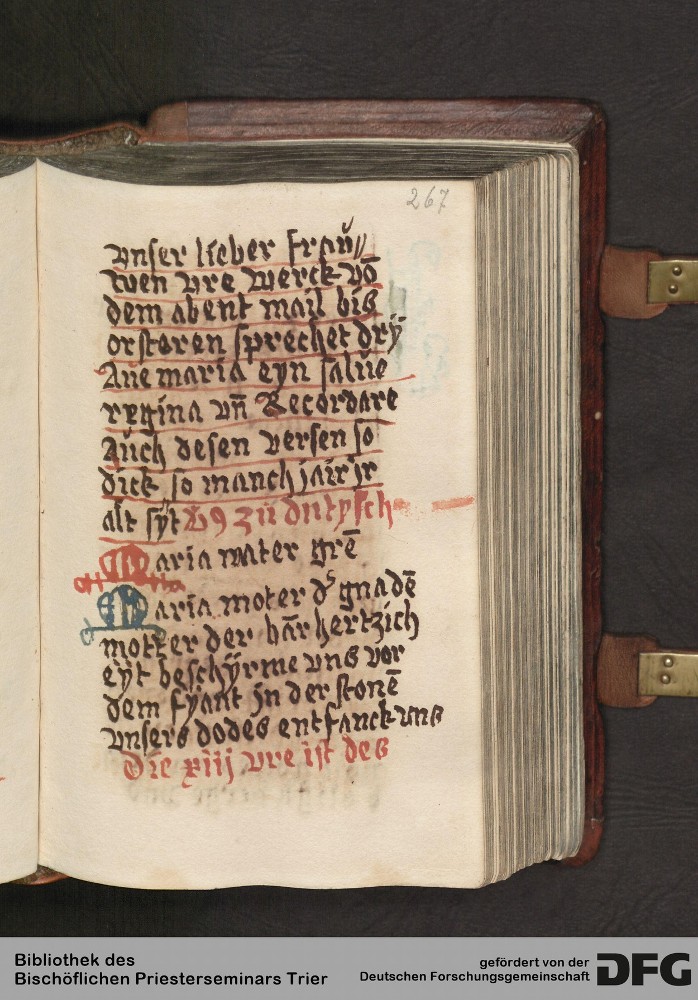 267
vnser lieber frau̍//
wen vre werck vo̅
dem abent mail bis
orsteren sprechet drÿ
Aue maria eyn salue
regina vn̅ Recordare
Auch desen versen so
dick so manch jair jr
alt syt Vꝯ zu dutysch
Maria mater gre̅
Maria moter ds gnade̅
motter der barhertzich
eyt beschÿrme vns vor
dem fÿant jn der stone̅
vnsers dodes entfanck vns
Die xiij vre ist des
Bibliothek des
Bischöflichen Priesterseminars Trier
gefördert von der
Deutschen Forschungsgemeinschaft DFG